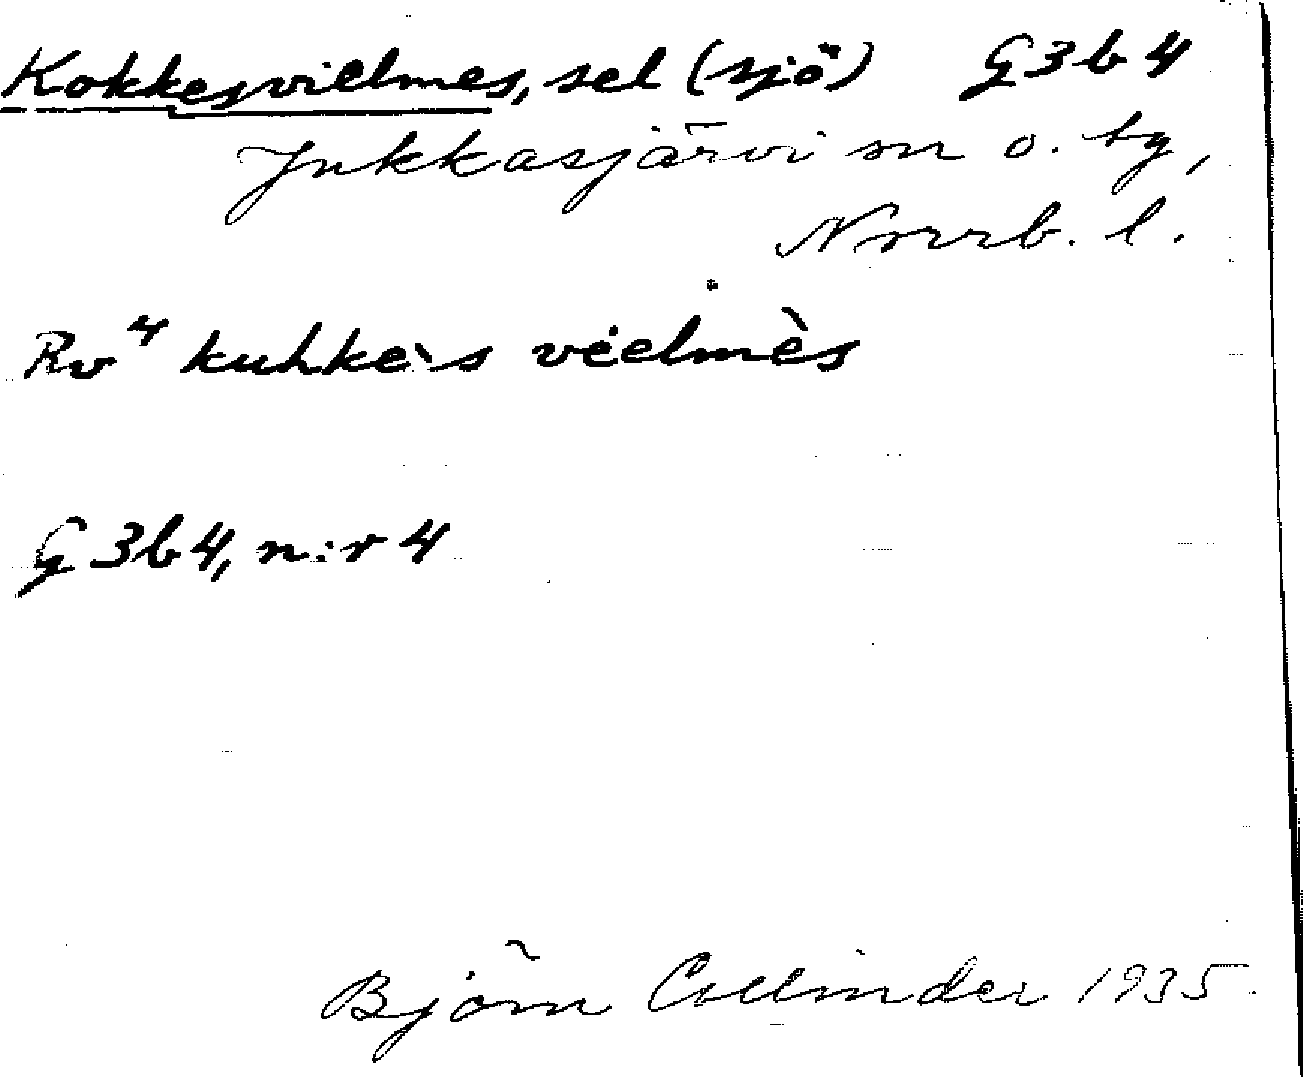 Kokkesvielmes, sel (sjö) G3b4
Jukkasjärvi sn o. tg,
Norrb. l.
Rv⁴ kuhke`s véelmès
G3b4, n:r 4
Björn Collinder 1935.